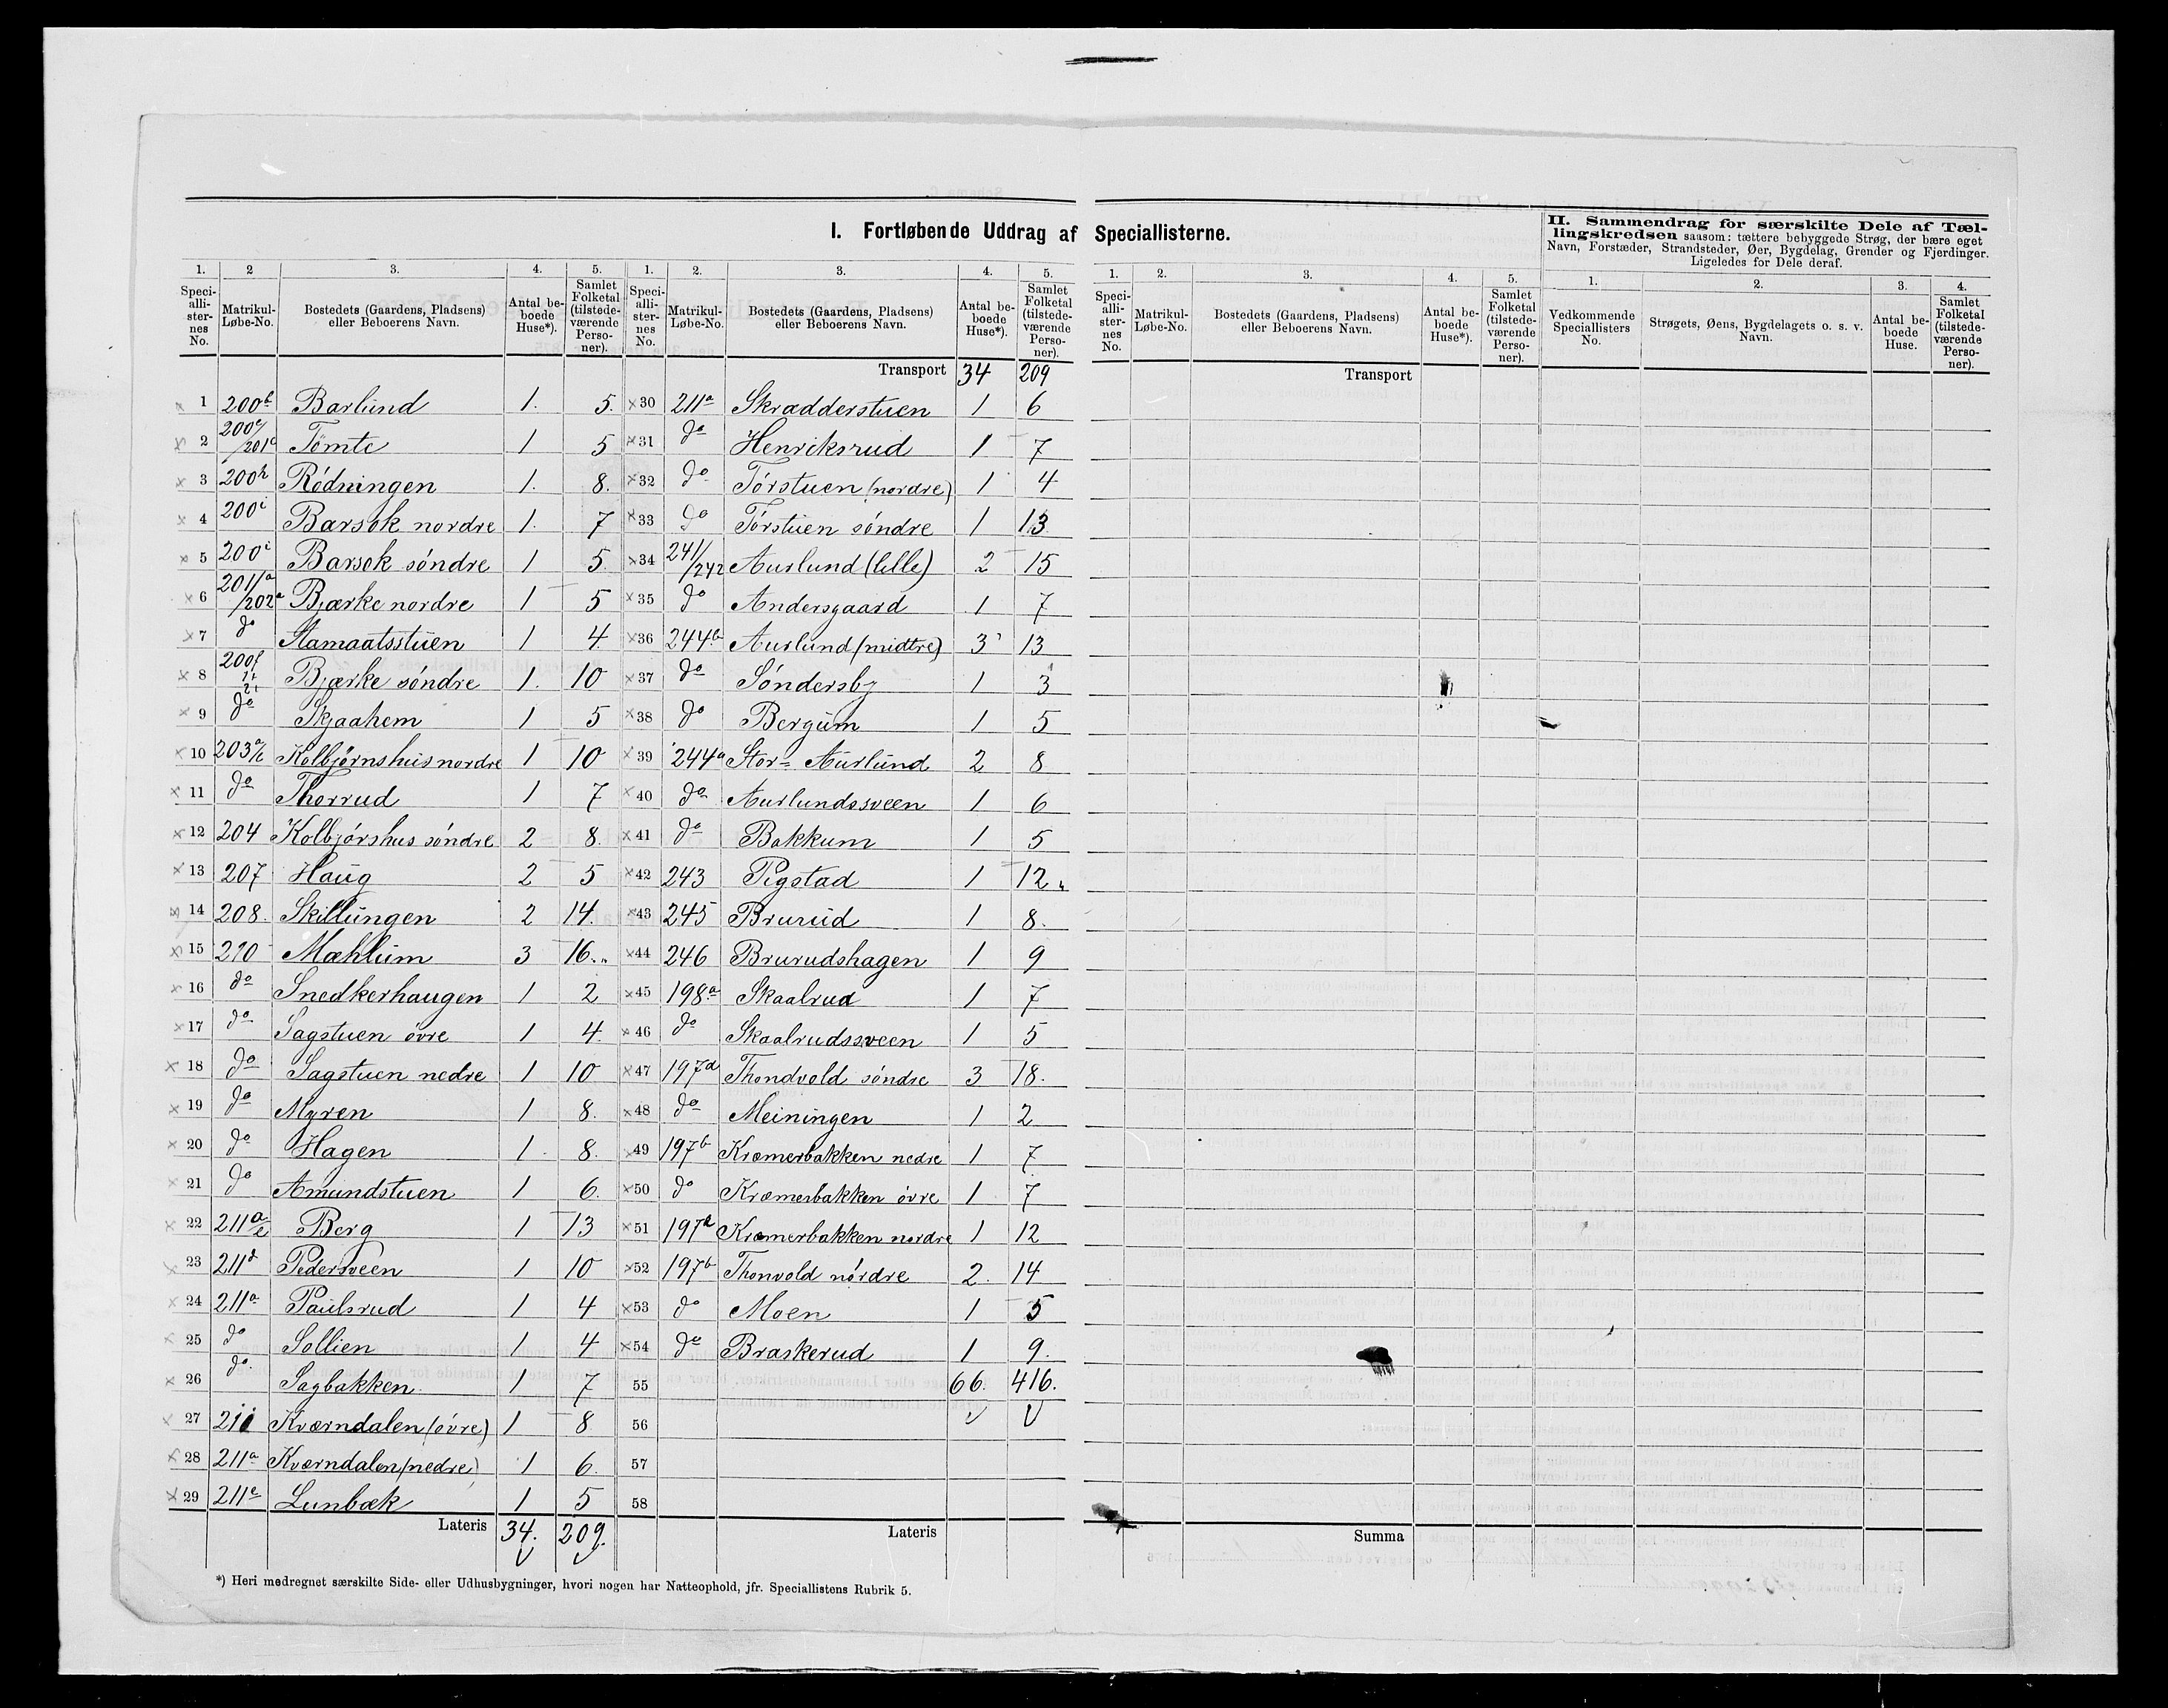 I. Fortløbende Uddrag af Speciallisterne.
II. Sammendrag for særskilte Dele af Tæl-
lingskredsen saasom: tættere bebyggede Strøg, der bære eget
Navn, Forstæder, Strandsteder, Øer, Bygdelag, Grender og Fjerdinger.
Ligeledes for Dele deraf.
1. 2 3. 4. 5. 1. 2. 3. 4. 5. 1. 2. 3. 4. 5. 1. 2. 3. 4.
Speci-alli-ster-nes No. Matrikul-Løbe-No. Bostedets (Gaardens, Pladsens) eller Beboerens Navn. Antal be-boede Huse*). Samlet Folketal (tilstede-værende Perso-ner).
Speci-alli-ster-nes No. Matrikul-Løbe-No. Bostedets (Gaardens, Pladsens) eller Beboerens Navn. Antal be-boede Huse*). Samlet Folketal (tilstede-værende Perso-ner).
Speci-alli-ster-nes No. Matrikul-Løbe-No. Bostedets (Gaardens, Pladsens) eller Beboerens Navn. Antal be-boede Huse*). Samlet Folketal (tilstede-værende Perso-ner).
Vedkommende Speciallisters No. Strøgets, Øens, Bygdelagets o. s. v. Navn. Antal be-boede Huse. Samlet Folketal (tilstede-værende Perso-ner).
1 200b Barlund 1. 5.
2 200c/201c Tømte 1 5
3 200h Rödningen 1. 8.
4 200i Barsok nordre 1. 7
5 200i Barsok söndre 1 5.
6 201a/202a Bjærke nordre 1 5
7 do 1 4.
8 200f Bjærke söndre 1. 10
9 do Skjaahem 1 5
10 203a/c Kolbjörnshus nordre 1 10
11 do Thorrud 1 7
12 204 Kolbjörshus söndre 2 8.
13 207 Haug 2 5
14 208. Skillungen 2 14.
15 210 Mæhlum 3 16.
16 do Snedkerhaugen 1 2
17 do Sagstuen övre 1 4.
18 do Sagstuen nedre 1 10
19 do Myren 1 8.
20 do Hagen 1. 8.
21 do Amundstuen 1 6.
22 211a/e Berg 1 13
23 211d Pedersveen 1 10
24 211a Paulsrud 1 4
25 do Sollien 1 4
26 do. Sagbakken 1 7
27 211 Kværndalen (övre) 1 8.
28 211a Kværndalen (nedre) 1 6.
29 211e Lunbæk 1 5
Lateris 34. 209.
Transport 34 209
30 211a Skrædderstuen 1 6
31 do Henriksrud 1 7
32 do Törstuen (nordre) 1 4
33 do Törstuen söndre 1 13
34 241/242 Aurlund (lille) 2 15
35 do Andersgaard 1 7
36 244b Aurlund (midtre) 3 13
37 do Söndersby 1 3
38 do Bergum 1 5
39 244a Stor- Aurlund 2 8
40 do Aurlundssveen 1 6
41 do Bakkum 1 5
42 243 Pigstad 1 12
43 245 Brurud 1 8.
44 246 Brurudshagen 1 9
45 198a Skaalrud 1 7
46 do Skaalrudssveen 1 5
47 197d Thondvold söndre 3 18.
48 do Meiningen 1 2
49 197b Kræmerbakken nedre 1 7
50 do Kræmerbakken övre 1 7
51 197d Kræmerbakken nordre 1 12
52 197b Thonvold nórdre 2. 14
53 do Moen 1 5
54 do Braskerud 1 9.
55 66. 416.
56
57
58
Lateris
Transport
Summa
*) Heri medregnet særskilte Side- eller Udhusbygninger, hvori nogen har Natteophold, jfr. Speciallistens Rubrik 5.